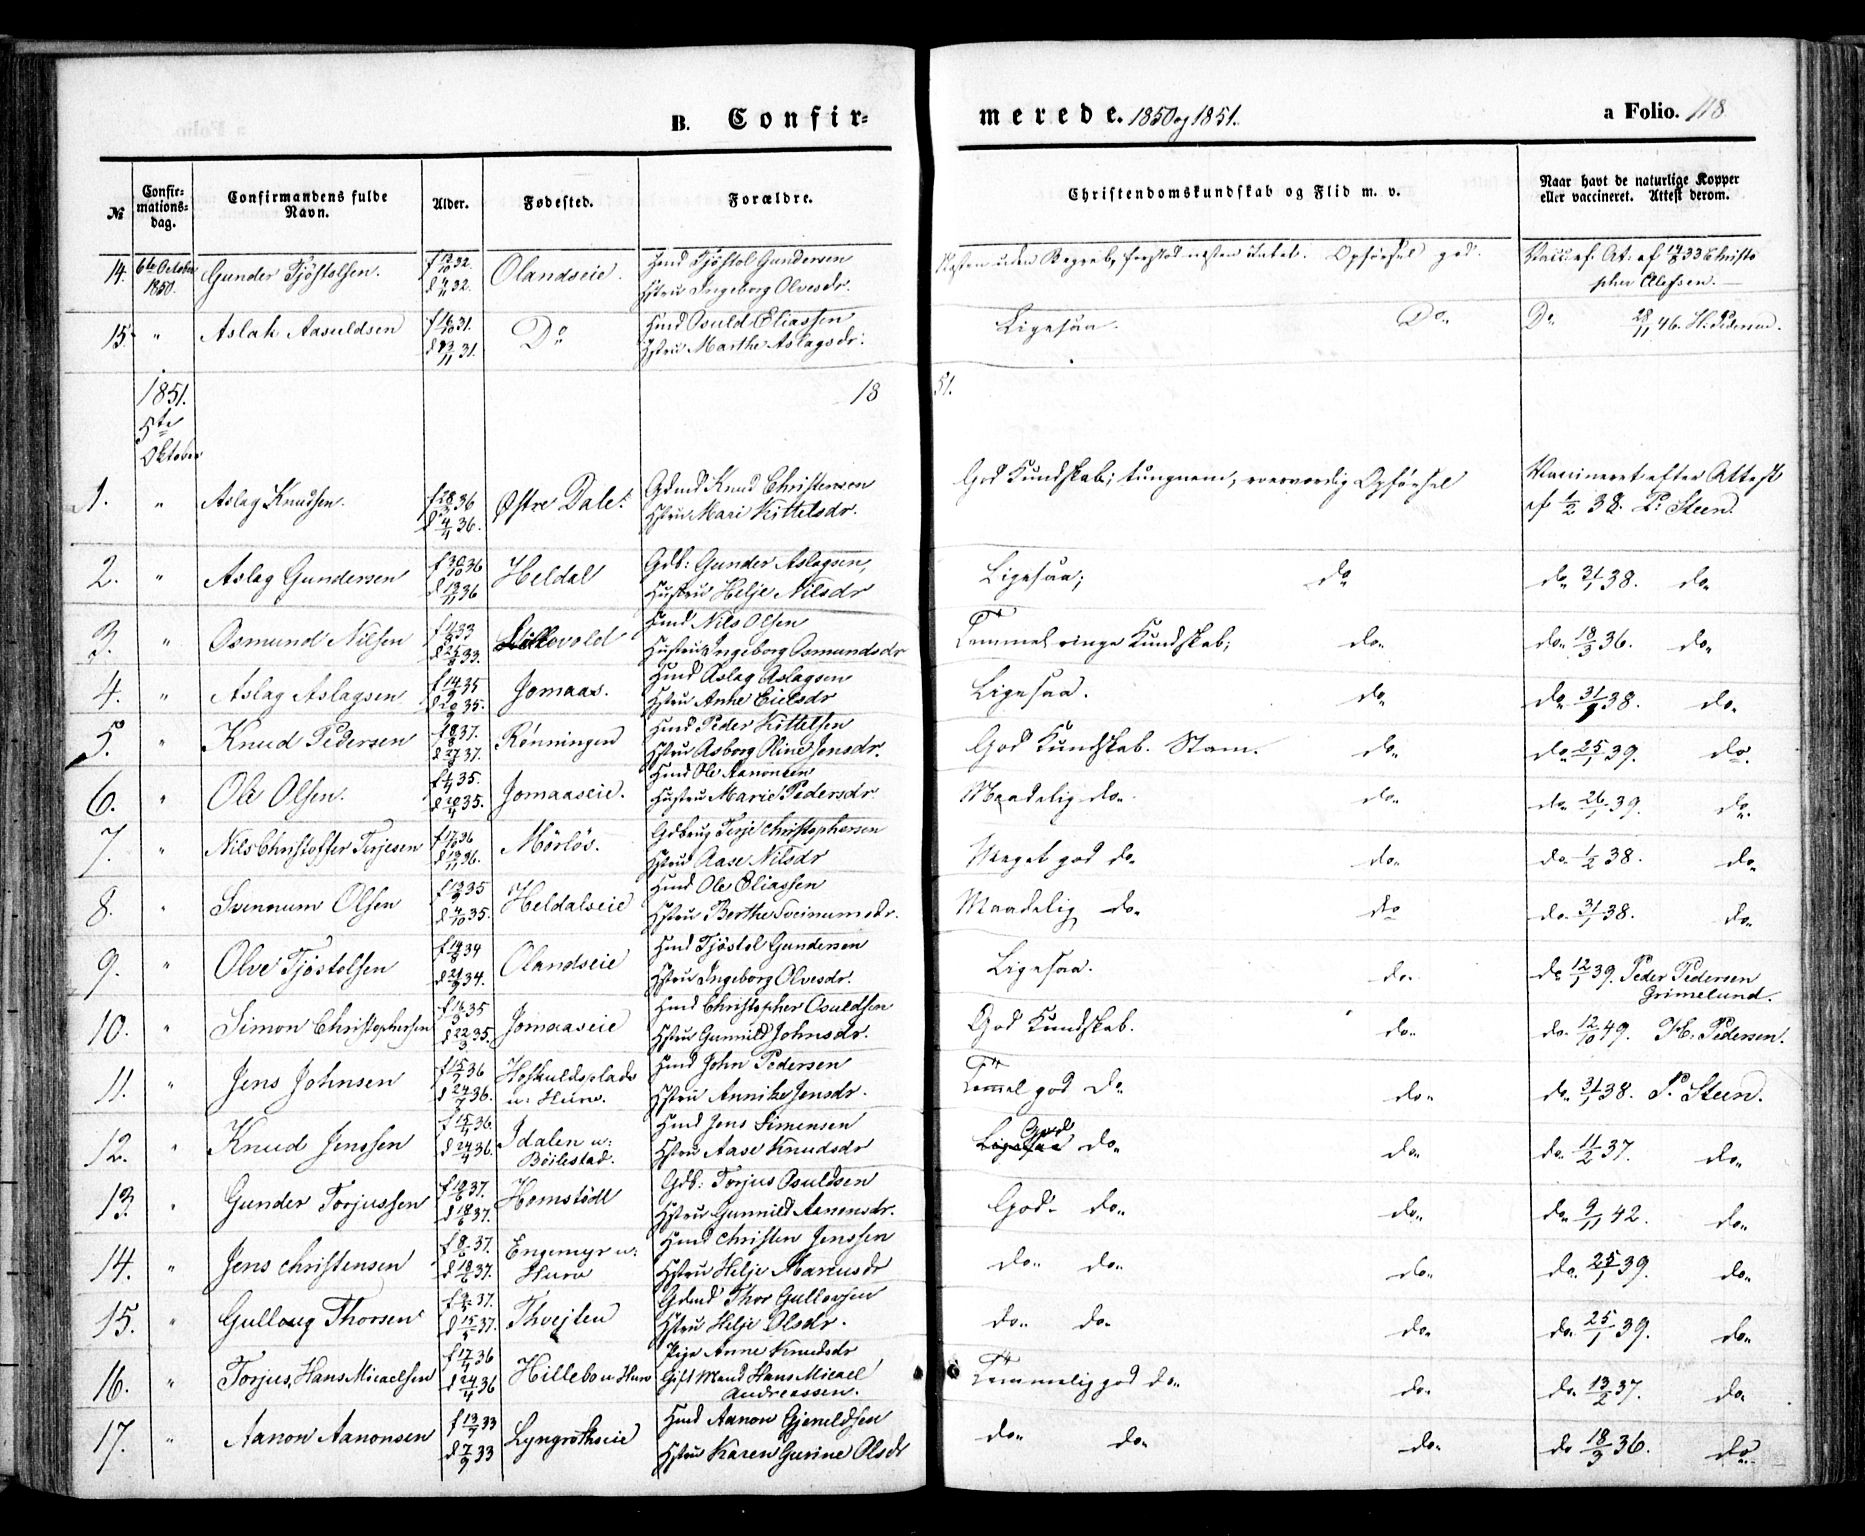 B. Confir-
merede. 1850 og 1851.
a Folio. 118
№
Confir-
mations-
dag.
Confirmandens fulde
Navn.
Alder.
Fødested.
Forældre.
Christendomskundskab og Flid m. v.
Naar havt de naturlige Kopper
eller vaccineret. Attest derom.
14. 6te October 1850. Gunder Tjöstolsen. Olandseie. Hmd Tjöstol Gundersen
Hstru Ingeborg Olvesdr. Opförsel god.
15. " Aslak Aasuldsen Do Hmd Osuld Eliassen
Hstru Marthe Aslagsdr. Ligesaa. Do 28/11 46. H. Pedersen.
1851.
5te
Oktober
18 51.
1. " Aslag Knudsen. Østre Dale. Gdmd Knud Christensen
Hstru Mari Kittelsdr. God Kundskab; tungnem, Opförsel Vaccineret efter Attest
af 1/2 38. P. Steen.
2. " Aslag Gundersen Heldal Gdb: Gunder Aslagsen,
Hustru Helje Nilsdr Ligesaa; do do 31/1 38. do
3. " Osmund Nilsen Hmd Nils Olsen
Hustru Ingeborg Osmundsdr Temmel. ringe Kundskab; do do 18/3 36. do
4. " Aslag Aslagsen Jomaas. Hmd Aslag Aslagsen
Hstru Anne Eielsdr Ligesaa. do do 31/1 38. do
5. " Knud Pedersen Rønningen Hmd Peder Kittelsen
Hstru Asborg Oline Jensdr. God Kundskab. Stam. do do 25/1 39. do
6. " Ole Olsen. Jomaaseie. Hmd Ole Aanonsen
Hustru Marie Pedersdr Maadelig do do do 26/1 39. do
7. " Nils Christoffer Terjesen Mörlös. Gdbrug Terje Christophersen
Hstru Aase Nilsdr Meget god do do do 1/2 38. do
8. " Svennum Olsen Heldalseie Hmd Ole Eliassen
Hstru Berthe Sveinumsdr. Maadelig do do do 31/1 38. do
9. " Olve Tjöstolsen Olandseie Hmd Tjöstol Gundersen
Hstru Ingeborg Olvesdr. Ligesaa. do do 12/1 39. Peder Pedersen
Grimelund.
10. " Simon Christophersen Jomaaseie Hmd Christopher Osuldsen
Hstru Gunnild Johnsdr. God Kundskab. do do 12/10 49. H. Pedersen.
11. " Jens Johnsen Hoskuldsplads
u. Hure. Hmd John Pedersen
Hstru Annike Jensdr. Temmel god Do do do 31/1 38. P. Steen.
12. " Knud Jenssen Idalen u:
Böilestad. Hmd Jens Simensen
Hstru Aase Knudsdr Ligesaa God do do do 11/2 37. do
13. " Gunder Torjussen Homstödl Gdb: Torjus Osuldsen
Hstru Gunnild Aanensdr. God do do do 9/11 42. do
14. " Jens Christensen Engemyr u:
Hure Hmd Christen Jenssen
Hstru Helje Marcusdr do do do do 25/1 39. do
15. " Gulloug Thorsen Thvejten Gdmd Thor Gullovsen
Hstru Helje Olsdr. do do do do 25/1 39. do
16. " Torjus, Hans Micaelsen Hillebo u Hure Pige Anne Knudsdr
Gift Mand Hans Micael
Andreassen. Temmelig god do do do 13/2 37. do
17. " Aanon Aanonsen Lyngrothseie Hmd Aanon Gjeruldsen
Hstru Karen Gurine Olsdr do do do do 18/3 36. do